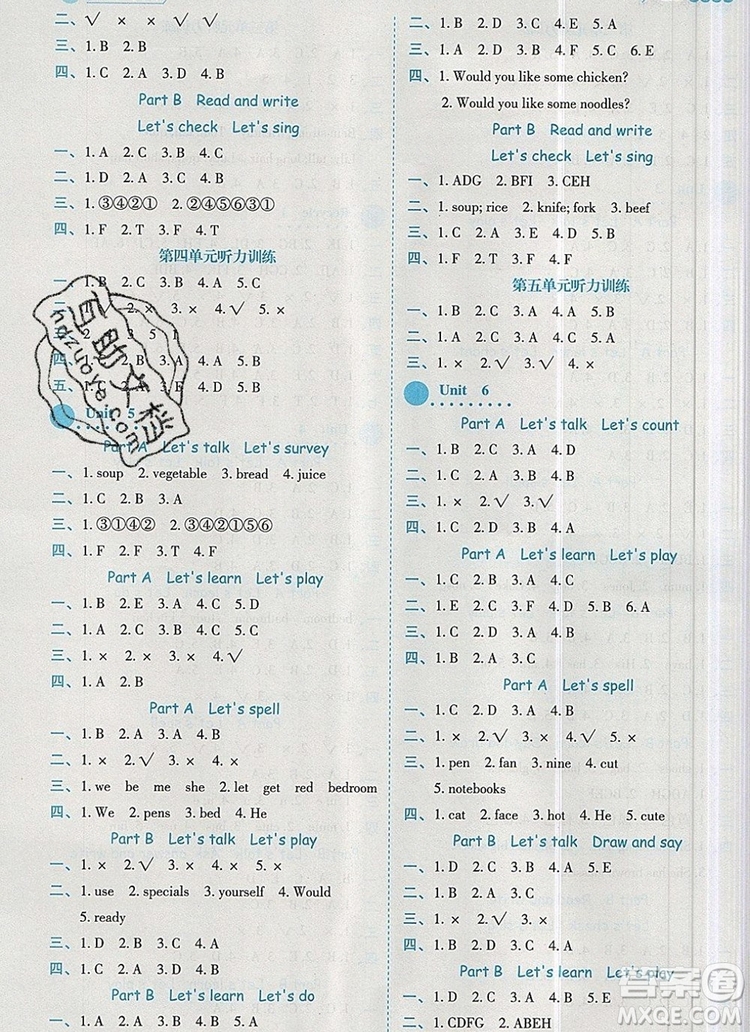 二、√ × × √ √
三、1. B 2. A 3. C 4. B
四、1. C 2. A 3. D 4. B
Part B Read and write
Let's check Let's sing
一、1. A 2. C 3. B 4. C
二、1. ③④②① 2. ②④⑤⑥③①
四、1. F 2. T 3. F 4. T
第四单元听力训练
一、1. B 2. C 3. A 4. A 5. C
2. × 3. × 4. √ 5. ×
3 5 1
四、1. C 2. B 3. A 4. A 5. B
五、1. C 2. A 3. E 4. D 5. B
Unit 5
Part A Let's talk Let's survey
一、1. soup 2. vegetable 3. bread 4. juice
二、1. C 2. B 3. A
三、1. ③①④② 2. ③④②①⑤⑥
四、1. F 2. F 3. T 4. F
Part A Let's learn Let's play
一、1. A 2. B 3. A 4. C 5. D
二、1. D 2. E 3. A 4. C 5. B
三、1. × 2. √ 3. × 4. × 5. √
四、1. A 2. B
Part A Let's spell
一、1. B 2. A 3. A 4. B 5. B
二、1. × 2. √ 3. √ 4. × 5. √
三、1. we be me she 2. let get red bedroom
四、1. We 2. pens 3. bed 4. He
Part B Let's talk Let's play
一、1. × 2. √ 3. × 4. √ 5. ×
二、1. use 2. specials 3. yourself 4. Would
5. ready
三、1. D 2. D 3. A 4. C 5. B
四、1. C 2. A 3. D 4. B
Part B Let's learn Let's do
一、1. B 2. A 3. B 4. A 5. B
三、1. B 2. A 3. D 4. C 5. G 6. E
四、1. Would you like some chicken?
2. Would you like some noodles?
Part B Read and write
Let's check Let's sing
一、1. ADG 2. BFI 3. CEH
二、1. soup; rice 2. knife; fork 3. beef
三、1. F 2. T 3. F 4. F
第五单元听力训练
一、1. B 2. C 3. A 4. B 5. C
二、1. B 2. A 3. A 4. B 5. A
三、1. × 2. √ 3. √ 4. ×
Unit 6
Part A Let's talk Let's count
一、1. A 2. C 3. A 4. D
二、1. B 2. C 3. A 4. A
三、1. × 2. √ 3. × 4. √
四、1. C 2. D 3. A 4. B
Part A Let's learn Let's play
一、1. D 2. A 3. B 4. C 5. E
二、1. E 2. C 3. F 4. D 5. B 6. A
三、1. B 2. A 3. D 4. C
四、1. A 2. B 3. C
Part A Let's spell
一、1. C 2. D 3. A 4. B
二、1. × 2. × 3. √ 4. × 5. √
三、1. pen 2. fan 3. nine 4. cut
5. notebooks
四、1. cat 2. face 3. hot 4. He 5. cute
Part B Let's talk Draw and say
一、1. D 2. C 3. B 4. A 5. E
二、1. D 2. C 3. D 4. A 5. A
三、1. C 2. D 3. A 4. B
四、1. B 2. A 3. D 4. C
Part B Let's learn Let's play
一、1. D 2. C 3. B 4. A
二、1. CDFG 2. ABEH
百助文档
hpzhuoye.com
答案圈
MXQE.COM